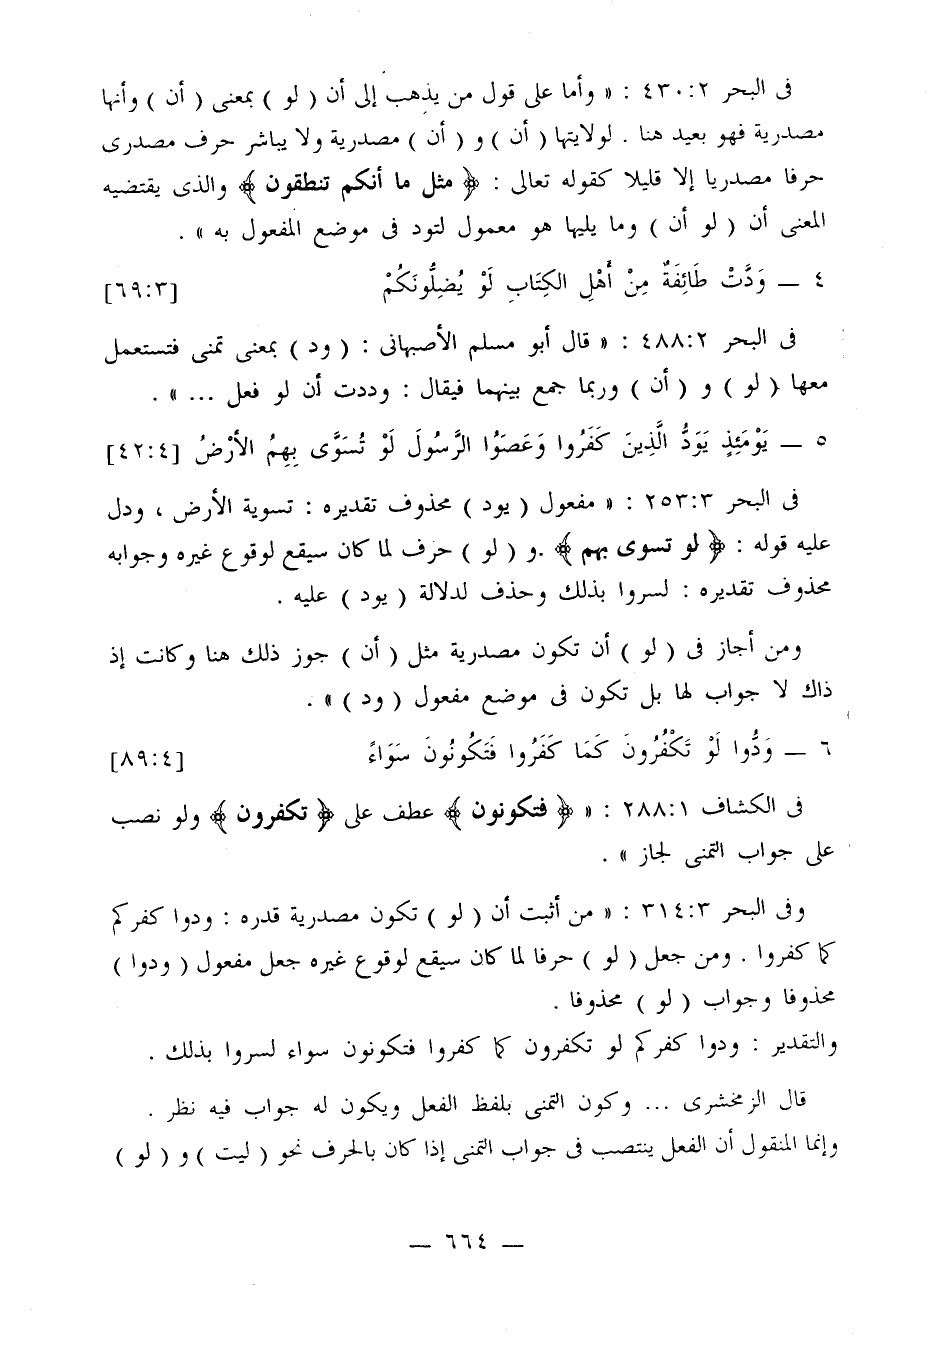 فى البحر ٢:٤٣٠ : « وأما على قول من يذهب إلى أن ( لو ) بمعنى ( أن ) وأنها
مصدرية فهو بعيد هنا . لولايتها ( أن ) و ( أن ) مصدرية ولا يباشر حرف مصدرى
حرفا مصدريا إلا قليلا كقوله تعالى : ﴿ مثل ما أنكم تنطقون ﴾ والذى يقتضيه
المعنى أن ( لو أن ) وما يليها هو معمول لتود فى موضع المفعول به » .
٤ ــ وَدَّتْ طَائِفَةٌ مِنْ أَهْلِ الكِتَابِ لَوْ يُضِلُّونَكُمْ [٦٩:٣]
فى البحر ٤٨٨:٢ : « قال أبو مسلم الأصبهانى : ( ود ) بمعنى تمنى فتستعمل
معها ( لو ) و ( أن ) وربما جمع بينهما فيقال : وددت أن لو فعل ... » .
٥ ــ يَوْمَئِذٍ يَوَدُّ الَّذِينَ كَفَرُوا وَعَصَوُا الرَّسُولَ لَوْ تُسَوَّى بِهِمُ الأَرْضُ [٤٢:٤]
فى البحر ٢٥٣:٣ : « مفعول ( يود ) محذوف تقديره : تسوية الأرض ، ودل
عليه قوله : ﴿ لو تسوى بهم ﴾ .و ( لو ) حرف لما كان سيقع لوقوع غيره وجوابه
محذوف تقديره : لسروا بذلك وحذف لدلالة ( يود ) عليه .
ومن أجاز فى ( لو ) أن تكون مصدرية مثل ( أن ) جوز ذلك هنا وكانت إذ
ذاك لا جواب لها بل تكون فى موضع مفعول ( ود ) » .
٦ ــ وَدُّوا لَوْ تَكْفُرُونَ كَمَا كَفَرُوا فَتَكُونُونَ سَوَاءً [٨٩:٤]
فى الكشاف ٢٨٨:١ : « ﴿ فتكونون ﴾ عطف على ﴿ تكفرون ﴾ ولو نصب
على جواب التمنى لجاز » .
وفى البحر ٣١٤:٣ : « من أثبت أن ( لو ) تكون مصدرية قدره : ودوا كفركم
كما كفروا . ومن جعل ( لو ) حرفا لما كان سيقع لوقوع غيره جعل مفعول ( ودوا )
محذوفا وجواب ( لو ) محذوفا .
والتقدير : ودوا كفركم لو تكفرون كما كفروا فتكونون سواء لسروا بذلك .
قال الزمخشرى ... وكون التمنى بلفظ الفعل ويكون له جواب فيه نظر .
وإنما المنقول أن الفعل ينتصب فى جواب التمنى إذا كان بالحرف نحو ( ليت ) و ( لو )
ــ ٦٦٤ ــ